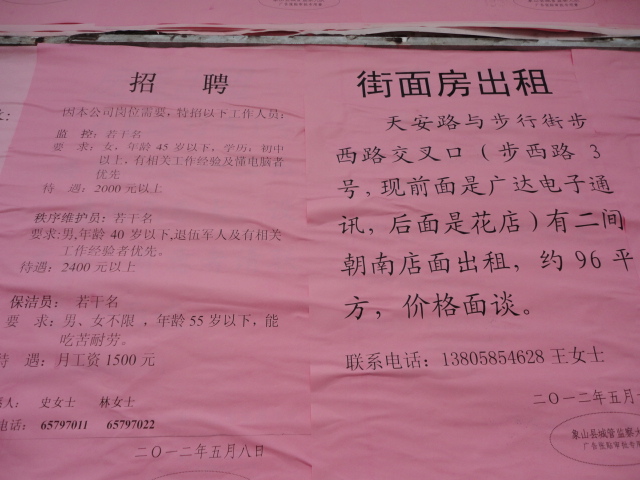 招 聘
因本公司岗位需要，特招以下工作人员：
监 控：若干名
要 求：女，年龄 45 岁以下，学历：初中
以上，有相关工作经验及懂电脑者
优先
待 遇：2000 元以上
秩序维护员：若干名
要求:男,年龄 40 岁以下,退伍军人及有相关
工作经验者优先。
待遇：2400 元以上
保洁员： 若干名
要 求：男、女不限 ，年龄 55 岁以下，能
吃苦耐劳。
待 遇：月工资 1500 元
人： 史女士 林女士
电话： 65797011 65797022
二〇一二年五月八日
街面房出租
天安路与步行街步
西路交叉口（步西路 3
号,现前面是广达电子通
讯，后面是花店）有二间
朝南店面出租，约 96 平
方，价格面谈。
联系电话：13805854628 王女士
二〇一二年五月
象山县城管监察大
广告张贴审批专用